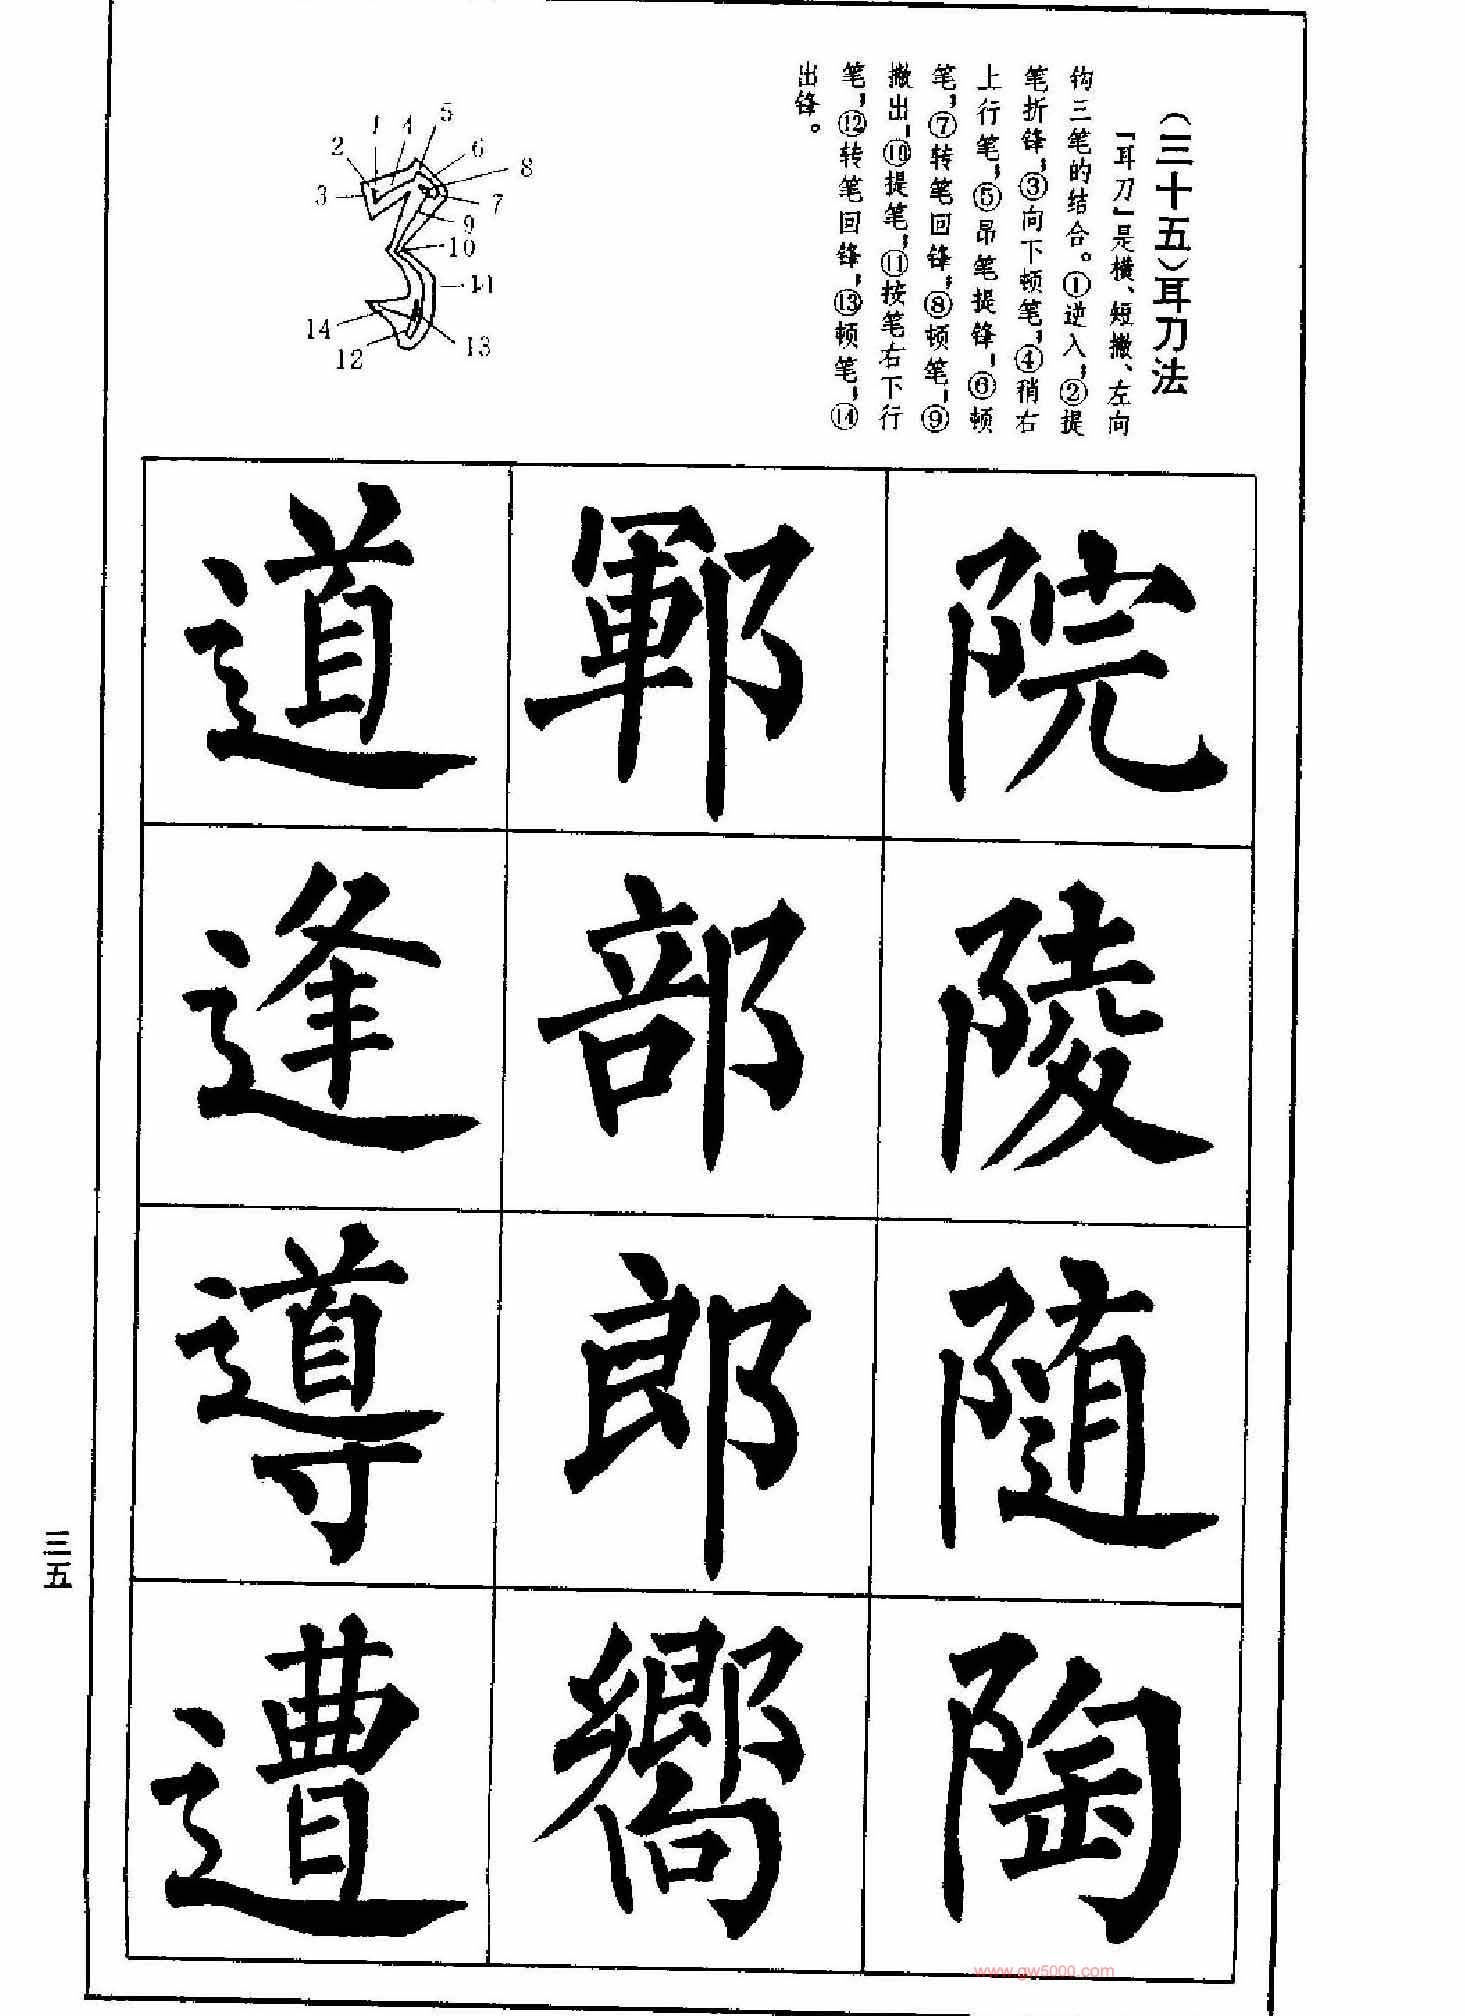 (三十五)耳刀法
『耳刀』是横、短撇、左向
钩三笔的结合。①逆入;②提
笔折锋;③向下顿笔;④稍右
上行笔;⑤昂笔提锋;⑥顿
笔;⑦转笔回锋;⑧顿笔;⑨
撇出;⑩提笔;⑪按笔右下行
笔;⑫转笔回锋;⑬顿笔;⑭
出锋。
1
2
3
4
5
6
7
8
9
10
11
12
13
14
院陵随陶
鄆部郎嚮
道逢導遭
三五
www.gw5000.com